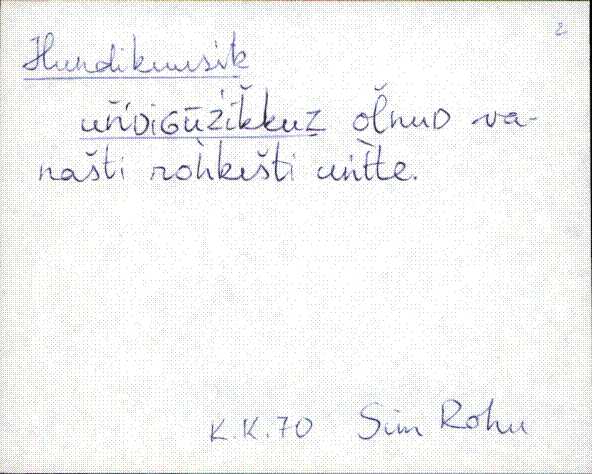 2
Hundikuusik
uńDiGūžikkuz olnuD va-
našti rohkešti unitte.
K.K.70 Sim Rohu